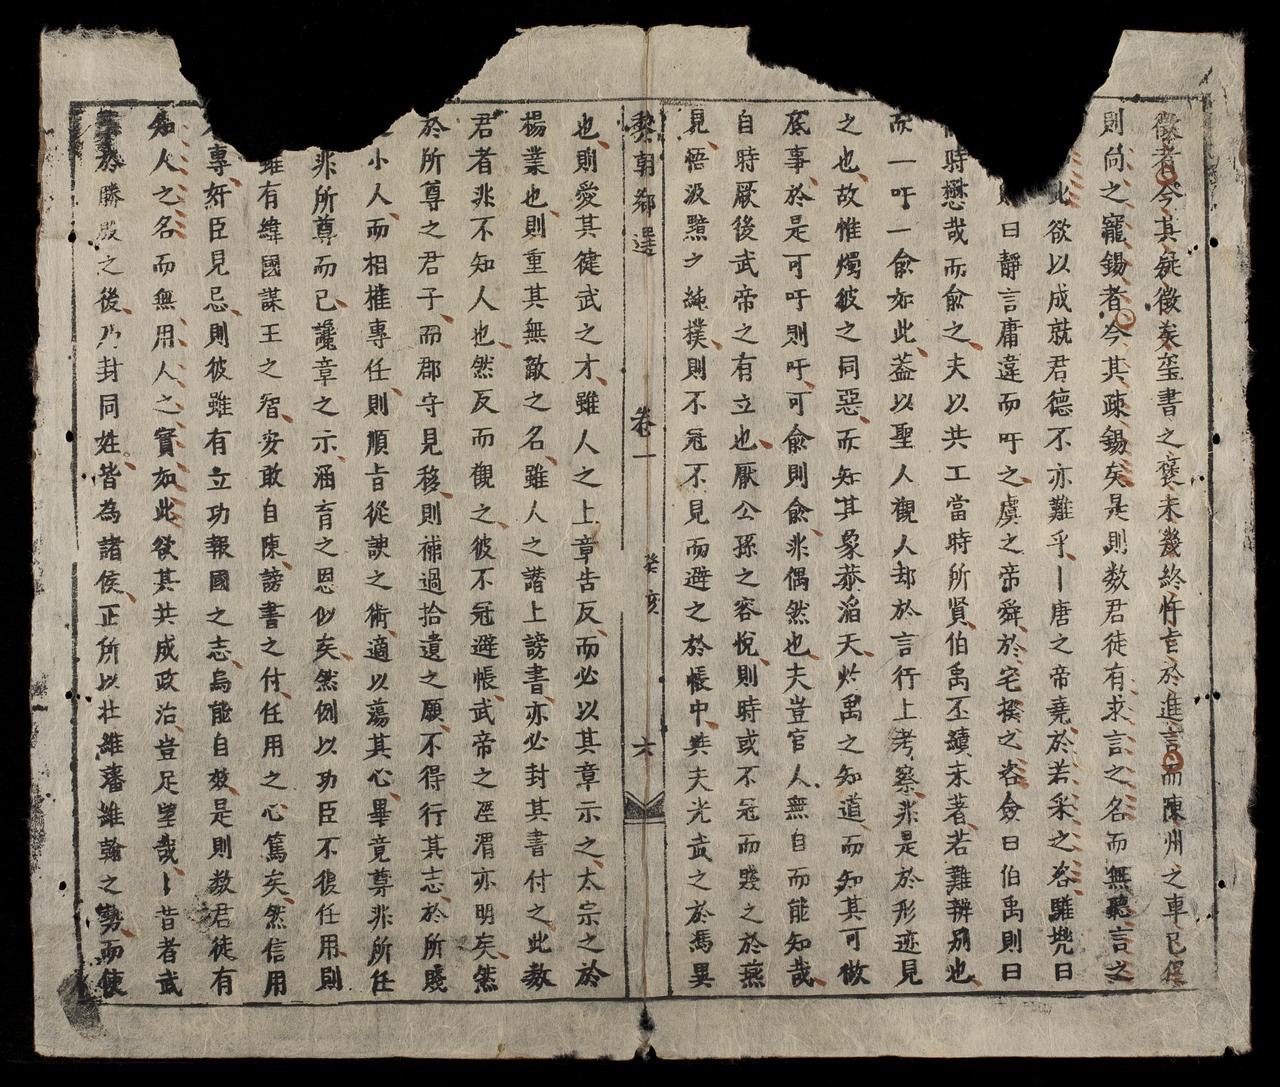 今其疑徵矣璽書之褒未幾終忤旨於進言而陳州之車已
則向之寵錫者今其疎錫矣是則数君徒有求言之名而無聽言之
此欲以成就君德不亦難乎丨唐之帝堯於若采之咨驩兜曰
曰靜言庸違而吁之虞之帝舜於宅揆之咨僉曰伯禹則曰
時懋哉而俞之夫以共工當時所賢伯禹丕績未著若難辨别也
而一吁一俞如此盖以聖人觀人却於言行上考察非是於形迹見
之也故惟燭彼之同惡而知其象恭滔天灼禹之知道而知其可做
底事於是可吁則吁可俞則俞非偶然也夫豈官人無自而能知哉
自時厥後武帝之有立也厭公孫之容悅則時或不冠而賤之於燕
見悟汲黯之純樸則不冠不見而避之於帳中與夫光武之於馮異
黎朝鄉選 卷一 癸亥 六
也則愛其健武之才雖人之上章告反而必以其章示之太宗之於
楊業也則重其無敵之名雖人之譖上謗書亦必封其書付之此数
君者非不知人也然反而觀之彼不冠避帳武帝之涇渭亦明矣然
於所尊之君子而郡守見移則補過拾遺之願不得行其志於所賤
小人而相権專任則順旨從諛之術適以蕩其心畢竟尊非所任
非所尊而已讒章之示涵育之恩似矣然例以功臣不復任用則
雖有緯國謀王之智安敢自陳謗書之付任用之心篤矣然信用
專奸臣見忌則彼雖有立功報國之志烏能自效是則数君徒有
知人之名而無用人之實如此欲其共成政治豈足望哉丨昔者武
於勝殷之後乃封同姓皆為諸侯正所以壮維藩維翰之勢而使